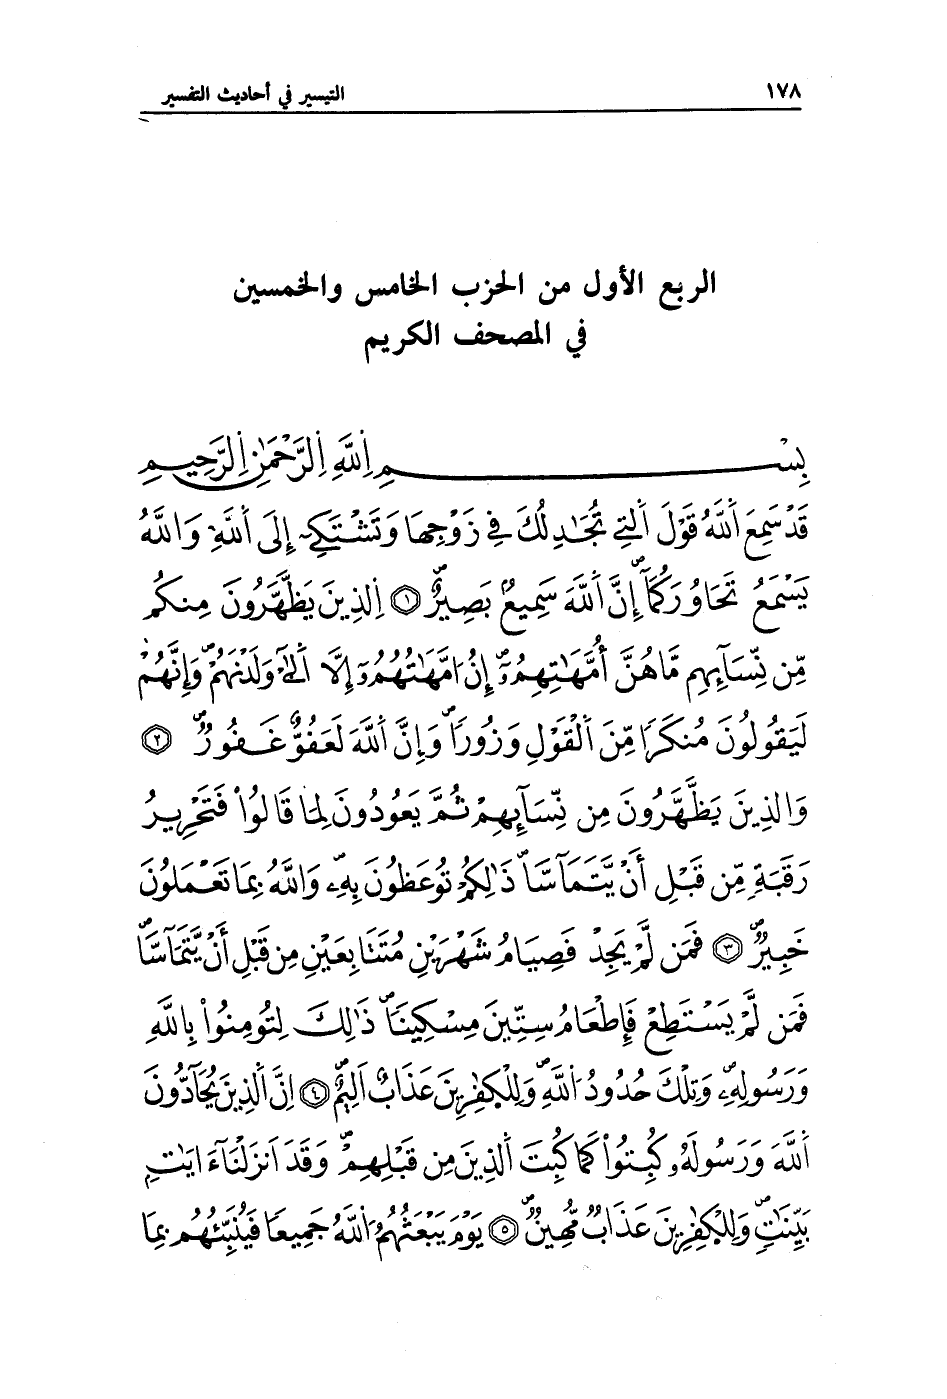 ١٧٨
التيسير في أحاديث التفسير
الربع الأول من الحزب الخامس والخمسين
في المصحف الكريم
بِسْمِ اِللَّهِ اِلرَّحْمَٰنِ اِلرَّحِيمِ
قَدْ سَمِعَ اَللَّهُ قَوْلَ اَلتِے تُجَٰدِلُكَ فِے زَوْجِهَا وَتَشْتَكِےٓ إِلَى اَللَّهِ وَاللَّهُ
يَسْمَعُ تَحَاوُرَكُمَآ إِنَّ اَللَّهَ سَمِيعٌ بَصِيرٌ ١ اِلذِينَ يَظَّهَّرُونَ مِنكُم
مِّن نِّسَآئِهِم مَّا هُنَّ أُمَّهَٰتِهِمُۥٓ إِنُ امَّهَٰتُهُمُۥٓ إِلَّا اَلَٰٓے وَلَدْنَهُمْ وَإِنَّهُمْ
لَيَقُولُونَ مُنكَرًا مِّنَ اَلْقَوْلِ وَزُورًا وَإِنَّ اَللَّهَ لَعَفُوٌّ غَفُورٌ ٢
وَالذِينَ يَظَّهَّرُونَ مِن نِّسَآئِهِمْ ثُمَّ يَعُودُونَ لِمَا قَالُواْ فَتَحْرِيرُ
رَقَبَةٍ مِّن قَبْلِ أَنْ يَّتَمَآسَّا ذَٰلِكُمْ تُوعَظُونَ بِهِۦ وَاللَّهُ بِمَا تَعْمَلُونَ
خَبِيرٌ ٣ فَمَن لَّمْ يَجِدْ فَصِيَامُ شَهْرَيْنِ مُتَتَابِعَيْنِ مِن قَبْلِ أَنْ يَّتَمَآسَّا
فَمَن لَّمْ يَسْتَطِعْ فَإِطْعَامُ سِتِّينَ مِسْكِينًا ذَٰلِكَ لِتُومِنُواْ بِاللَّهِ
وَرَسُولِهِۦ وَتِلْكَ حُدُودُ اُللَّهِ وَلِلْكٰفِرِينَ عَذَابٌ اَلِيمٌ ٤ اِنَّ اَلذِينَ يُحَآدُّونَ
اَللَّهَ وَرَسُولَهُۥ كُبِتُواْ كَمَا كُبِتَ اَلذِينَ مِن قَبْلِهِمْ وَقَدَ اَنزَلْنَآ ءَايَٰتِۢ
بَيِّنَٰتٍ وَلِلْكٰفِرِينَ عَذَابٌ مُّهِينٌ ٥ يَوْمَ يَبْعَثُهُمُ اُللَّهُ جَمِيعًا فَيُنَبِّئُهُم بِمَا